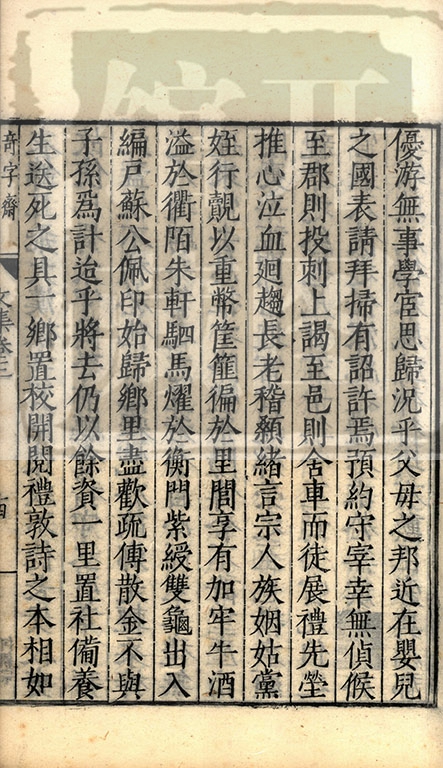 優游無事學宦思歸況乎父母之邦近在嬰兒
之國表請拜掃有詔許焉預約守宰幸無偵候
至郡則投刺上謁至邑則舍車而徒展禮先塋
推心泣血廻趨長老稽顙緒言宗人族姻姑黨
姪行覿以重幣筐篚徧於里閭享有加牢牛酒
溢於衢陌朱軒駟馬燿於衡門紫綬雙龜出入
編戸蘇公佩印始歸鄉里盡歡疏傅散金不與
子孫爲計迨乎將去仍以餘資一里置社備養
生送死之具一鄉置校開閱禮敦詩之本相如
奇字齋
文集卷三